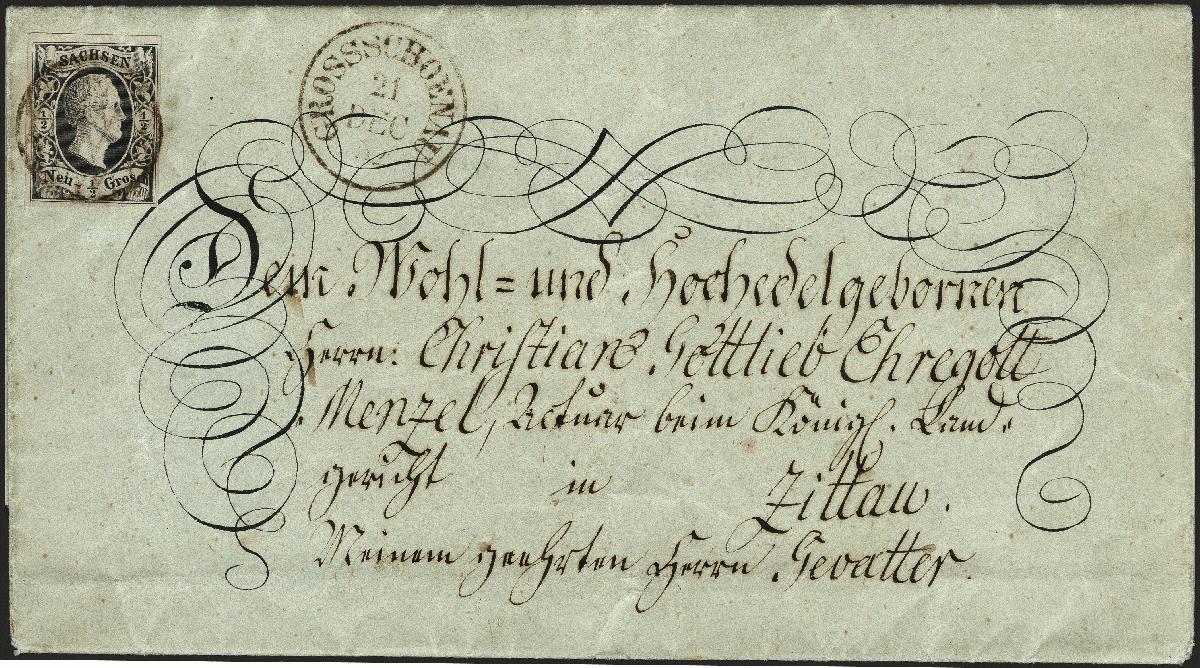 SACHSEN
1/2 1/2
Neu- 1/2 Grosch
GROSSSCHOENAU
21
DEC
Dem Wohl= und Hochedelgebornen
Herrn: Christian Gottlieb Ehregott
Menzel, Actuar beim Königl. Land-
gericht in Zittau.
Meinem geehrten Herrn Gevatter.